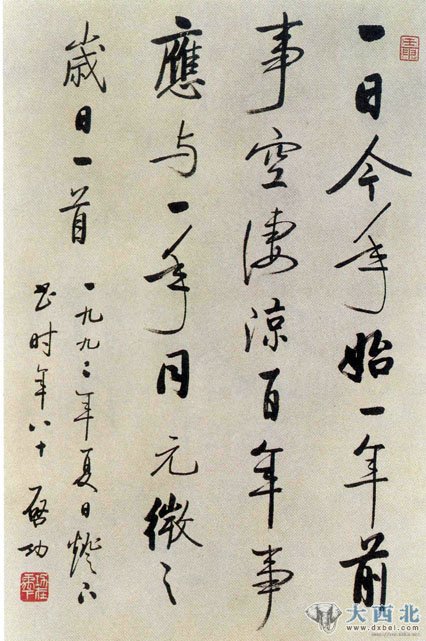 一日今年始一年前
事空凄凉百年事
應与一年同元微之
歲日一首
一九九二年夏日燈下
書时年八十啓功
大西北
www.dxbei.com